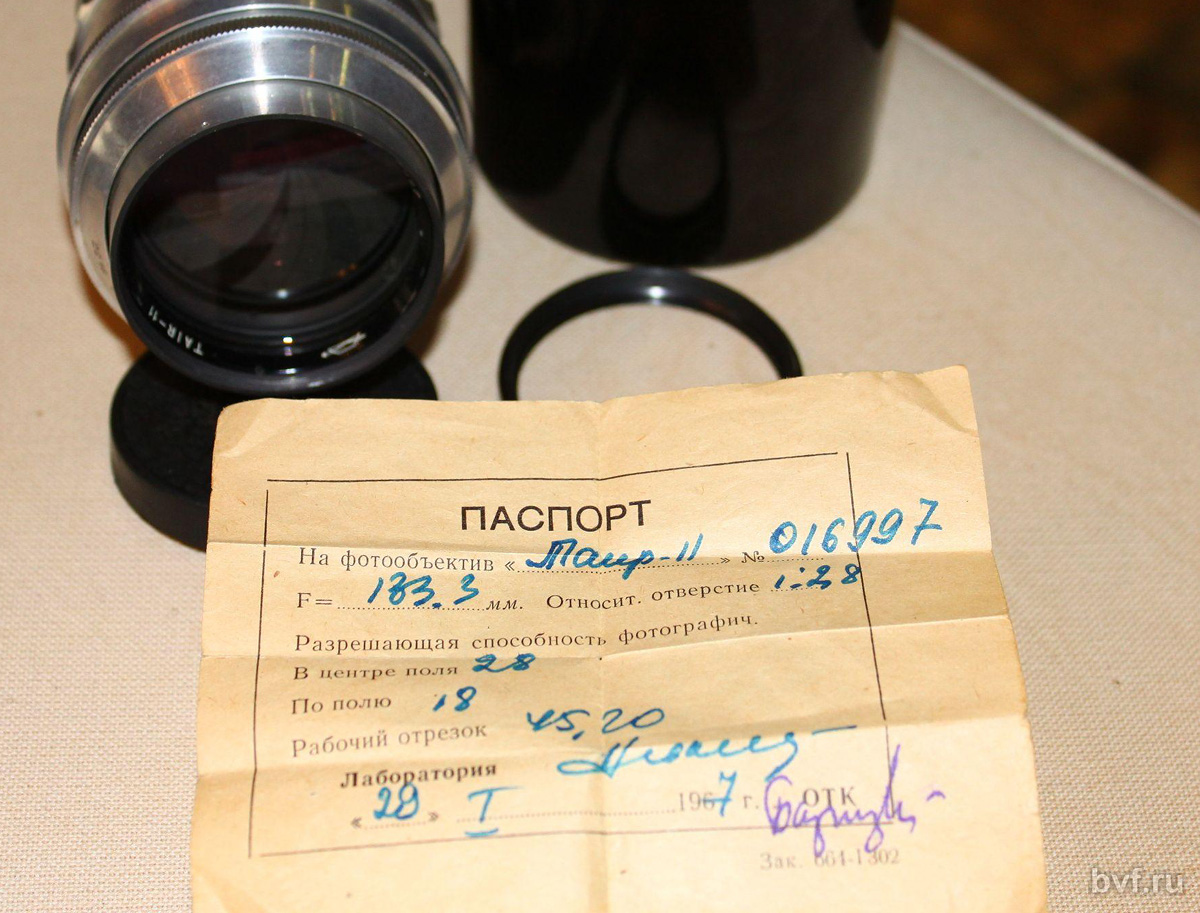 TAIR-11
ПАСПОРТ
На фотообъектив « Таир-11 » № 016997
F= 133.3 мм. Относит. отверстие 1:2,8
Разрешающая способность фотографич.
В центре поля 28
По полю 18
Рабочий отрезок 45,20
Лаборатория
« 29 » I 1967 г. ОТК
Зак. 664-1302
bvf.ru